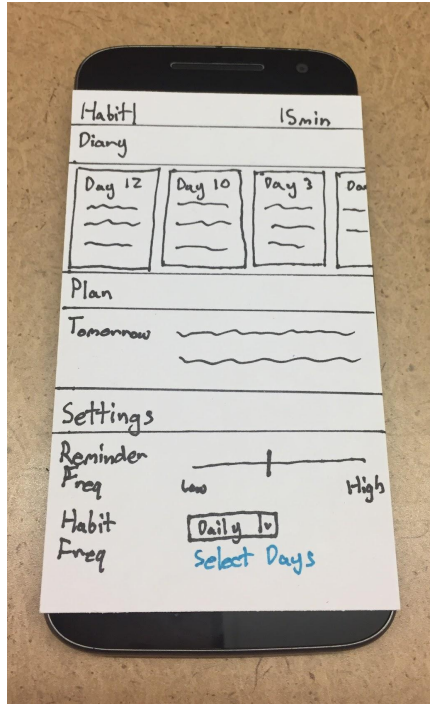 Habit 15min
Diary
Day 12 Day 10 Day 3
Plan
Tomorrow
Settings
Reminder
Freq
Low High
Habit Daily
Freq Select Days